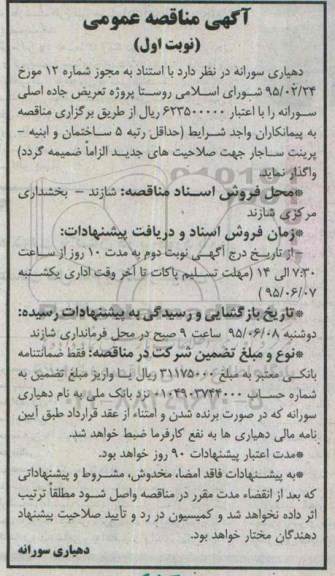 آگهی مناقصه عمومی
(نوبت اول)
دهیاری سورانه در نظر دارد با استناد به مجوز شماره ۱۲ مورخ
۹۵/۰۲/۲۴ شورای اسلامی روستا پروژه تعریض جاده اصلی
سورانه را با اعتبار ۶۲۳۵۰۰۰۰۰ ریال از طریق برگزاری مناقصه
به پیمانکاران واجد شرایط (حداقل رتبه ۵ ساختمان و ابنیه -
پرینت ساجار جهت صلاحیت های جدید الزاماً ضمیمه گردد)
واگذار نماید.
*محل فروش اسناد مناقصه: شازند - بخشداری
مرکزی شازند
*زمان فروش اسناد و دریافت پیشنهادات:
- از تاریخ درج آگهی نوبت دوم به مدت ۱۰ روز از ساعت
۷:۳۰ الی ۱۴ (مهلت تسلیم پاکات تا آخر وقت اداری یکشنبه
۹۵/۰۶/۰۷)
*تاریخ بازگشایی و رسیدگی به پیشنهادات رسیده:
دوشنبه ۹۵/۰۶/۰۸ ساعت ۹ صبح در محل فرمانداری شازند
*نوع و مبلغ تضمین شرکت در مناقصه: فقط ضمانتنامه
بانکی معتبر به مبلغ ۳۱۱۷۵۰۰۰ ریال یا واریز مبلغ تضمین به
شماره حساب ۰۱۰۴۹۰۳۷۴۴۰۰۰ نزد بانک ملی به نام دهیاری
سورانه که در صورت برنده شدن و امتناء از عقد قرارداد طبق آیین
نامه مالی دهیاری ها به نفع کارفرما ضبط خواهد شد.
*مدت اعتبار پیشنهادات ۹۰ روز خواهد بود.
*به پیشنهادات فاقد امضاء، مخدوش، مشروط و پیشنهاداتی
که بعد از انقضاء مدت مقرر در مناقصه واصل شود مطلقاً ترتیب
اثر داده نخواهد شد و کمیسیون در رد و تأیید صلاحیت پیشنهاد
دهندگان مختار خواهد بود.
دهیاری سورانه